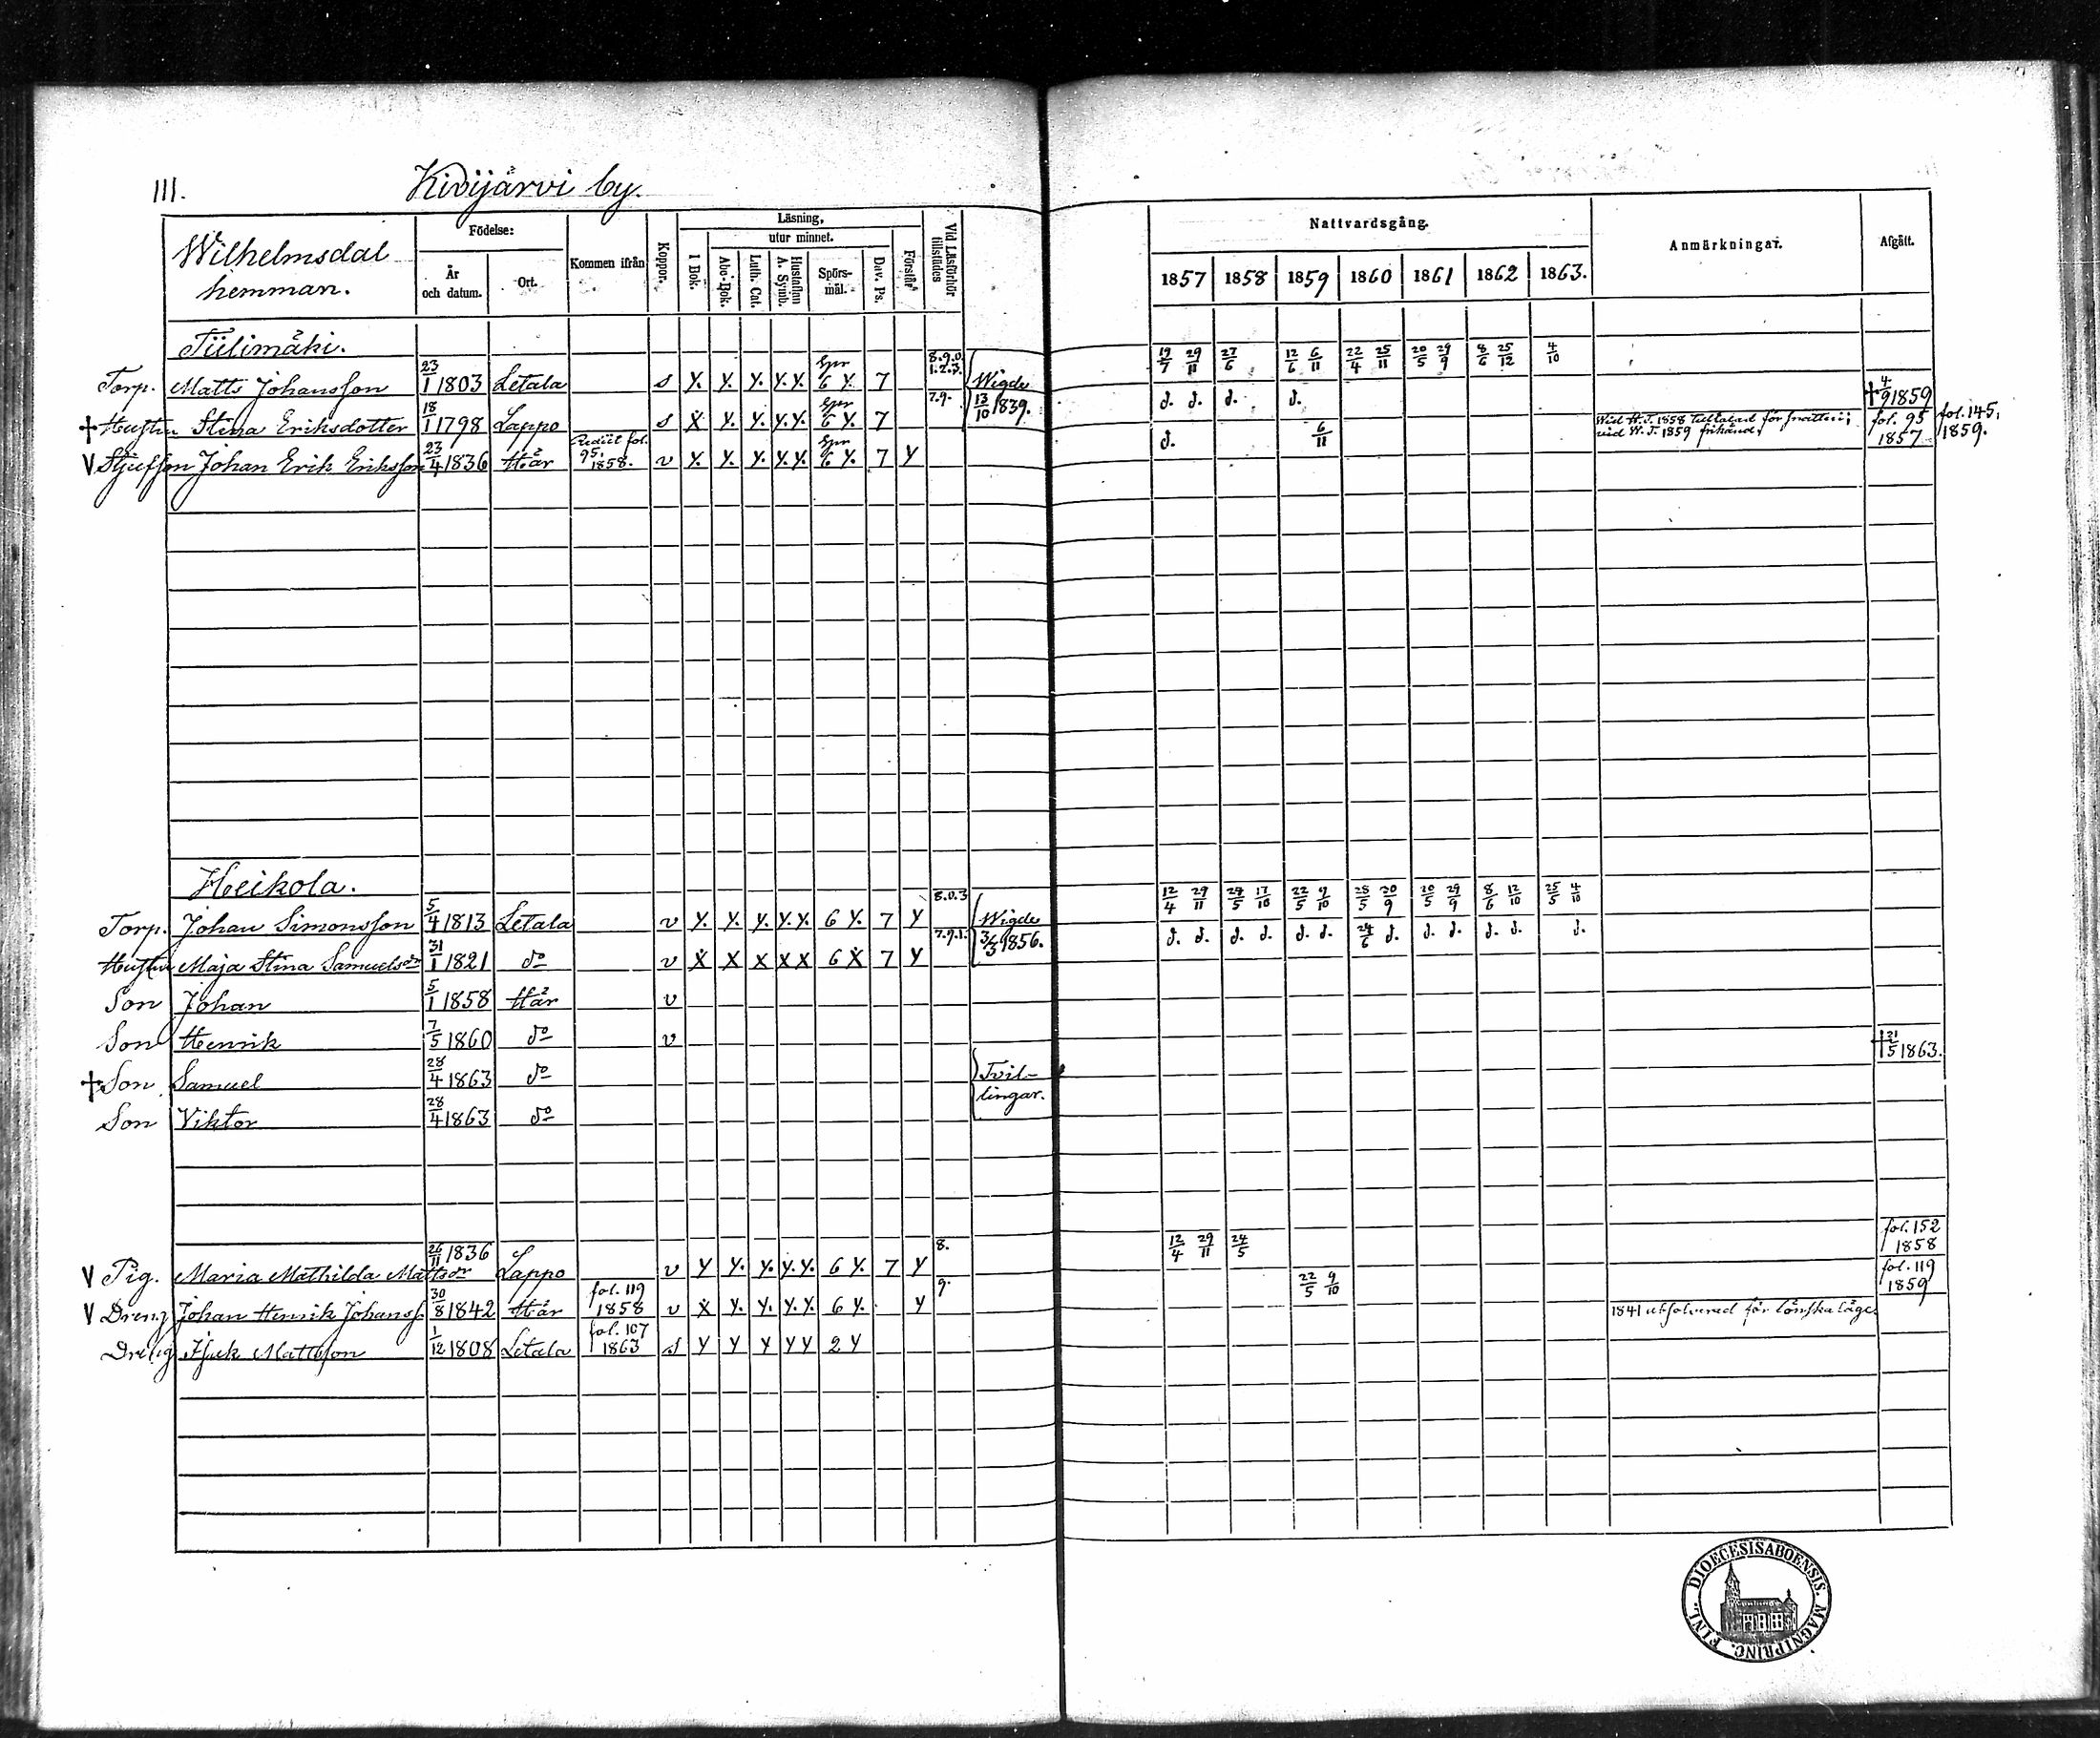 111.
Kivijärvi by.
Wilhelmsdal
hemman.
Födelse:
År
och datum.
Ort.
Kommen ifrån
Koppor.
Läsning,
utur minnet.
I Bok.
Abc-Bok.
Luth. Cat.
Hustaflan
A. Symb.
Spörs-
mål.
Dav. Ps.
Förstår
Vid Läsförhör
tillstädes
Nattvardsgång.
1857 1858 1859 1860 1861 1862 1863.
Anmärkningar.
Afgått.
Tiilimäki.
Torp. Matts Johansson 23/1 1803 Letala s y. y. y. y. y. Spr 6 y. 7 8.9.0. 1.2.3. Wigde 19/7 29/11 27/6 12/6 6/11 22/4 25/11 20/5 29/9 8/6 25/12 4/10
† Hustru Stina Eriksdotter 18/1 1798 Lappo s x y. y. y. y. Spr 6 y. 7 7.9. 13/10 1839. d. d. d. d. † 4/9 1859
V Stjufson Johan Erik Eriksson 23/4 1836 Här fol. 95, 1858. v y. y. y. y. y. Spr 6 y. 7 y d. 6/11 Wid W. T. 1858 tilltalad för
vid W. T. 1859 frikänd, fol. 95 1857 fol. 145, 1859.
Heikola.
Torp. Johan Simonsson 5/4 1813 Letala v y. y. y. y. y. 6 y. 7 y 8.0.3 Wigde 12/4 29/11 24/5 17/10 22/5 9/10 28/5 20/9 20/5 29/9 8/6 12/10 25/5 4/10
Hustru Maja Stina Samuelsdr 31/1 1821 do v x x x x x 6 x 7 y 7.9.1. 3/3 1856. d. d. d. d. d. d. 24/6 d. d. d. d. d. d.
Son Johan 5/1 1858 Här v
Son Henrik 7/5 1860 do v
† Son Samuel 28/4 1863 do Tvil- † 21/5 1863.
Son Viktor 28/4 1863 do lingar.
V Pig. Maria Mathilda Mattsdr 26/11 1836 Lappo v y y. y. y. y. 6 y. 7 y 8. 12/4 29/11 24/5 fol. 152 1858
V Dreng Johan Henrik Johanss. 30/8 1842 Här fol. 119 1858 v x y. y. y. y. 6 y. y 9. 22/5 9/10 fol. 119 1859
Dreng Isak Mattsson 1/12 1808 Letala fol. 107 1863 s y y y y y 2 y 1841 absolverad för lönskaläge
DIOECESIS ABOENSIS. MAGNI PRINC. FINL.